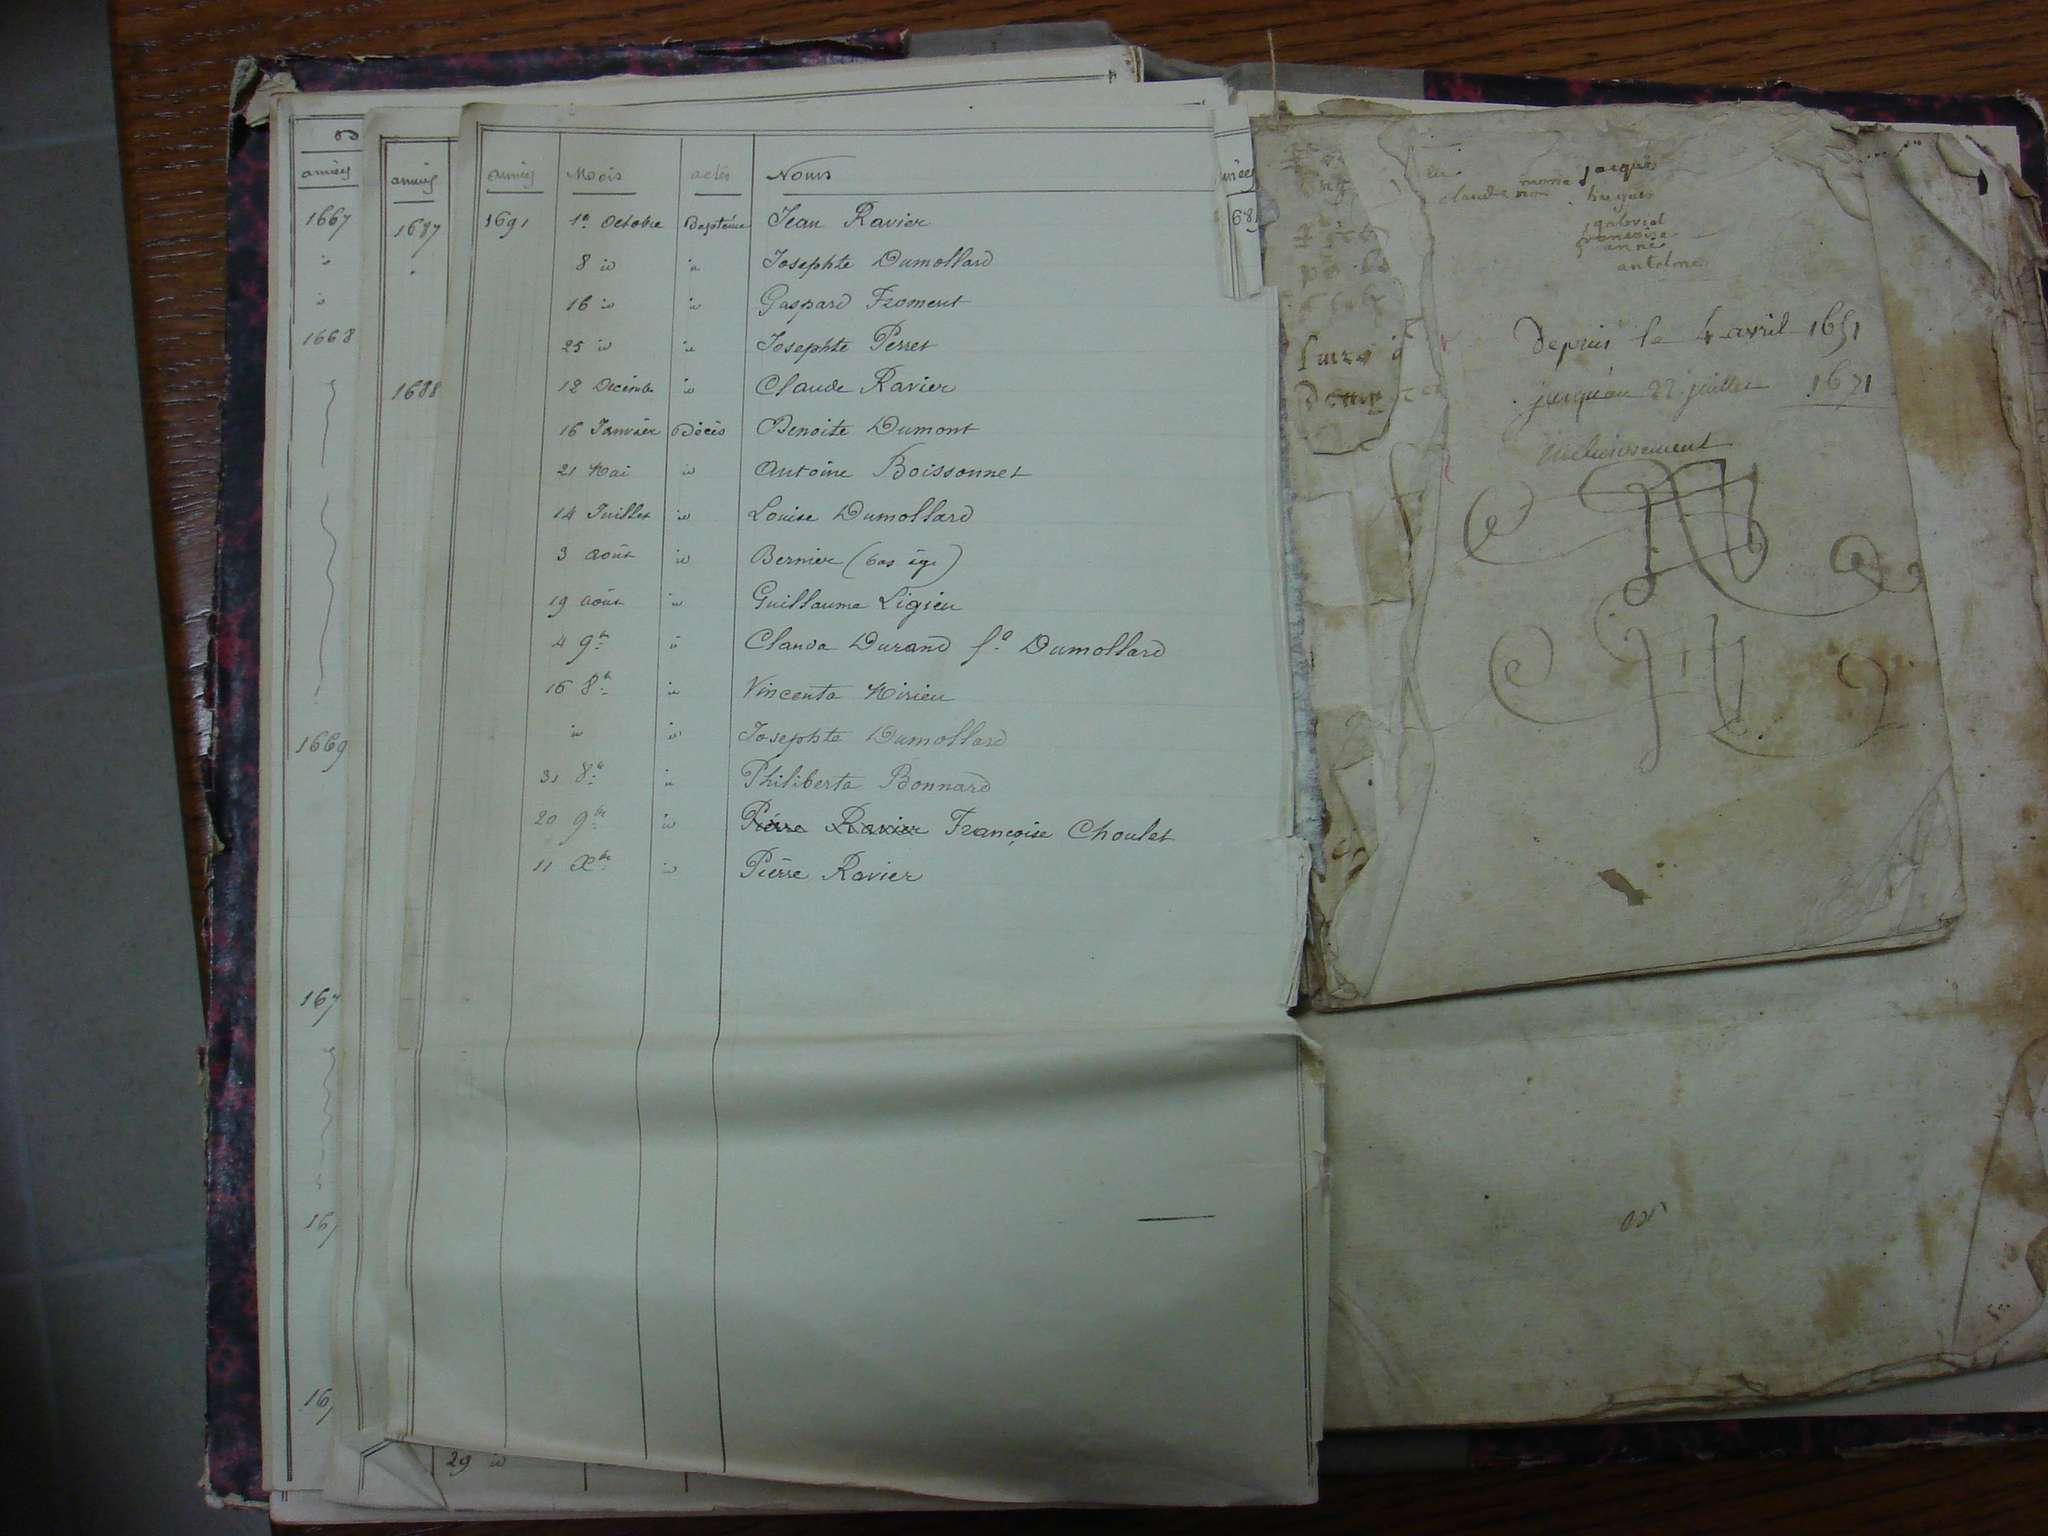 années Mois actes Noms
1691 1er Octobre Baptême Jean Ravier
8 id id Josephte Dumollard
16 id id Gaspard Froment
25 id id Josephte Perret
12 Décembre id Claude Ravier
16 Janvier Décès Benoite Dumont
21 Mai id Antoine Boissonnet
14 Juillet id Louise Dumollard
3 août id Bernier (bas âge)
19 août id Guillaume Ligieu
4 9bre id Clauda Durand fe Dumollard
16 8bre id Vincenta
id id Josephte Dumollard
31 8bre id Philiberta Bonnard
20 9bre id Pierre Ravier Françoise Choulet
11 Xbre id Pierre Ravier
années
1667
id
id
1668
1669
167
167
16
années
1687
1688
29 id
nées
68
jacques
claude hugues
gabriel
francoise
anne
antelme
Depuis le 4 avril 1651
jusqu'au 22 juillet 1671
inclusivement